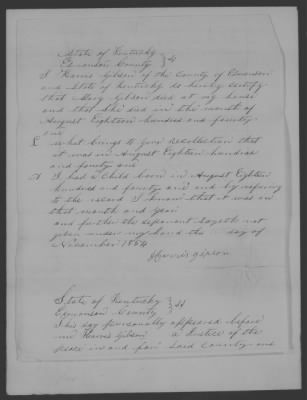 State of Kentucky
Edmonson County } ss
I Harris Gibson of the County of Edmonson
and State of Kentucky do hereby certify
that Mary Gibson died at my house
and that she died in the month of
August Eighteen hundred and fourty
one
Q what brings to your recollection that
it was in August Eighteen hundred
and fourty one
A I had a child born in August Eighteen
hundred and fourty one and by refering
to the record I know that it was in
that month and year
and further the deponant sayeth not
given under my hand the day of
November 1854
Harris gibson
State of Kentucky
Edmonson County } ss
This day personally appeared before
me Harris Gibson a Justice of the
peace in and for said County and